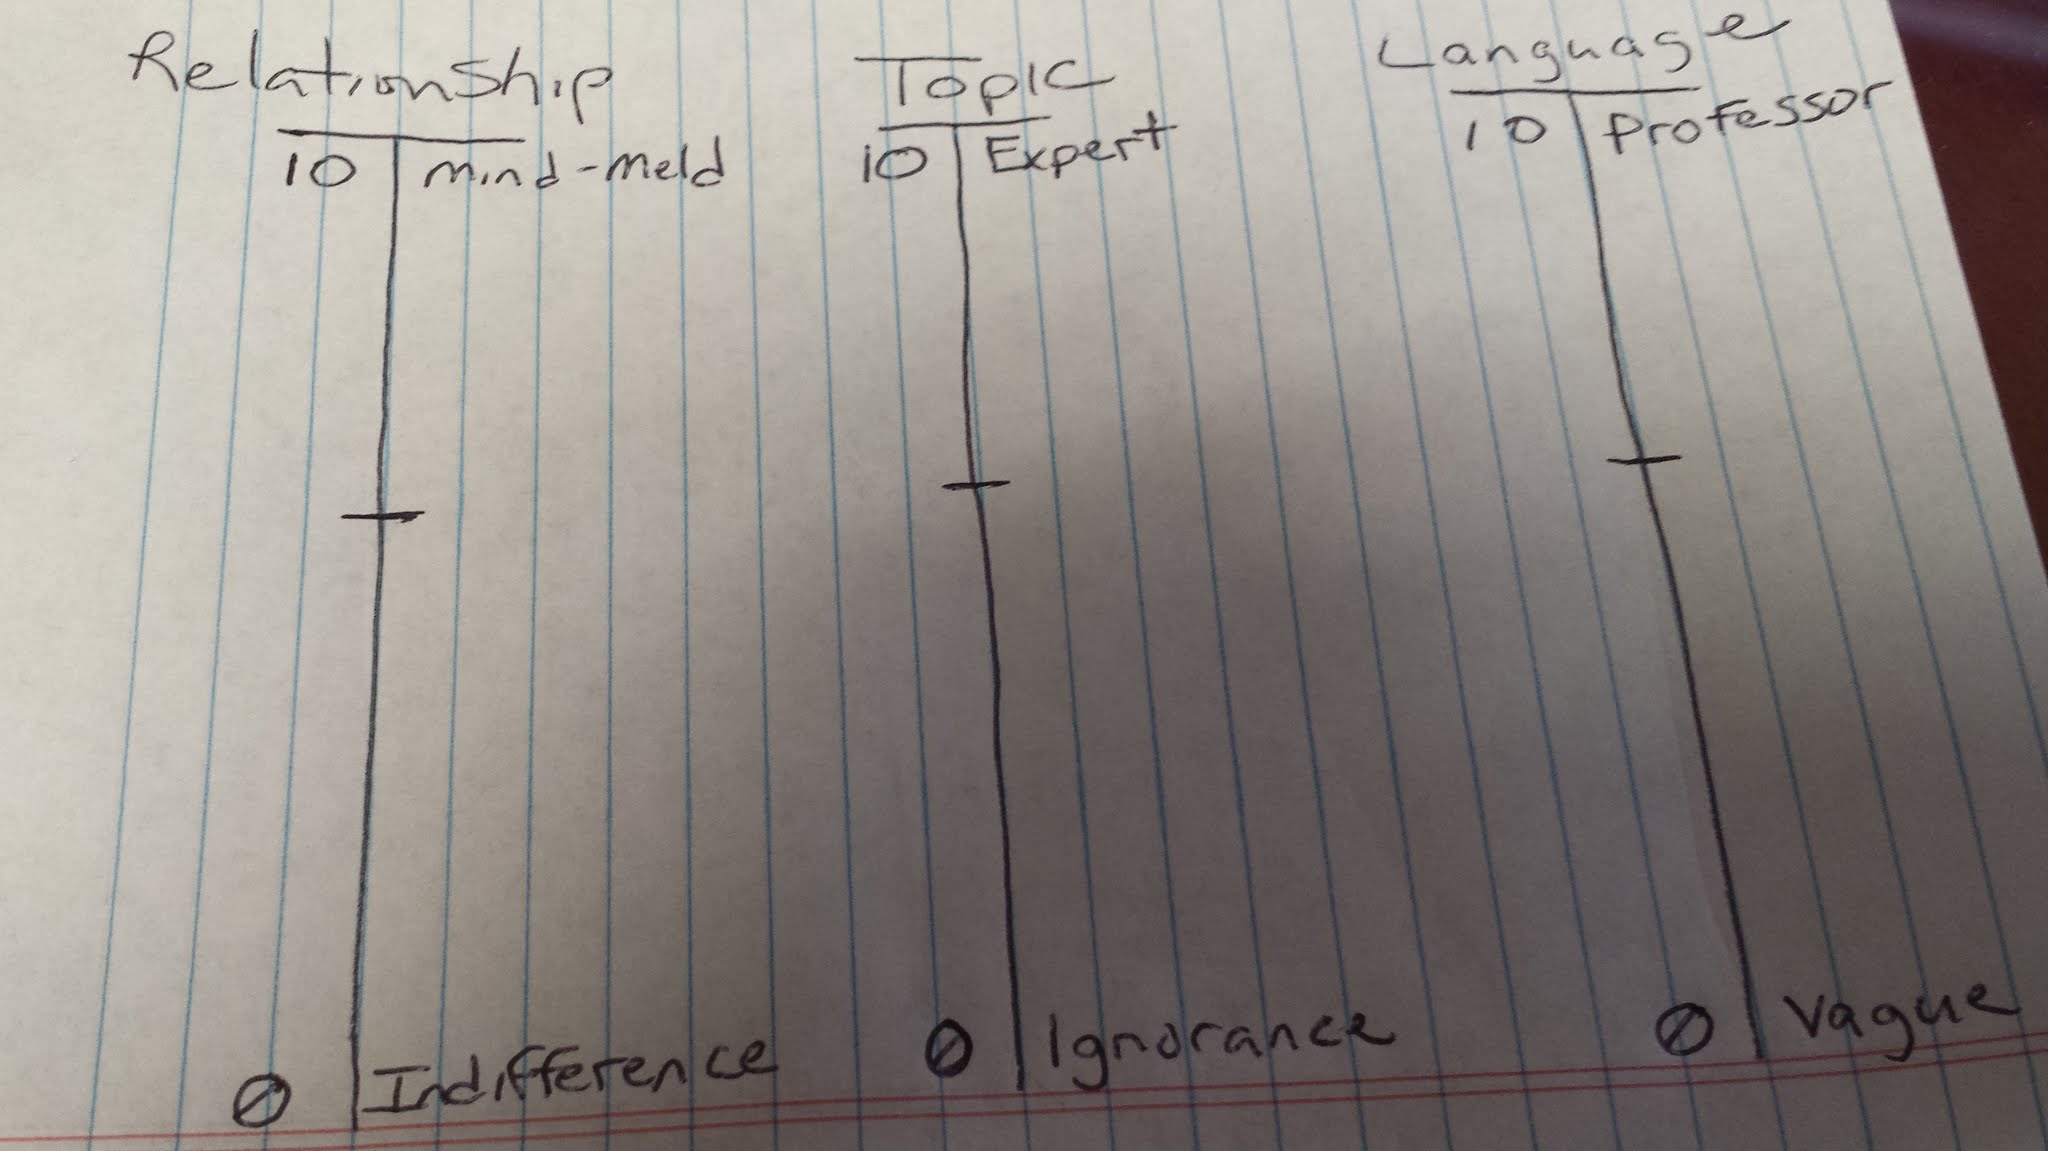 Relationship
10 Mind-Meld
0 Indifference
Topic
10 Expert
0 Ignorance
Language
10 Professor
0 Vague